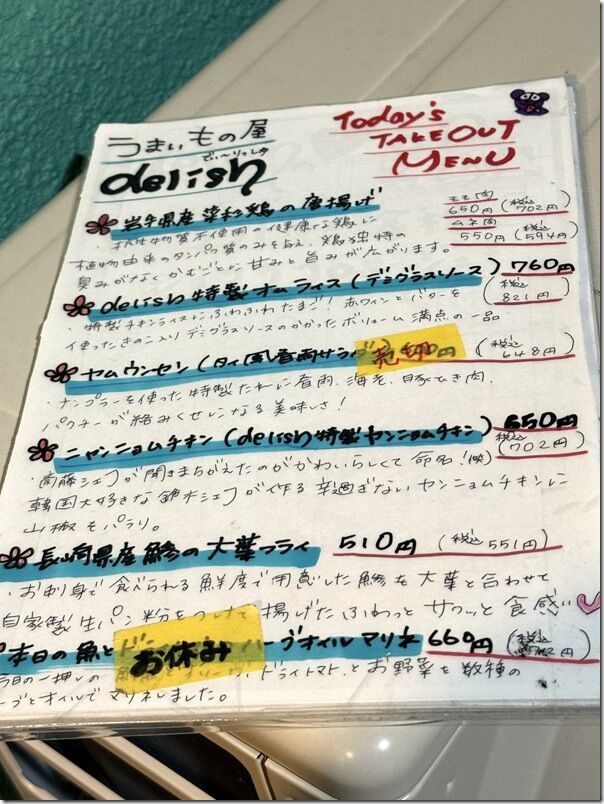 うまいもの屋
でぃ〜りっしゅ
delish
Today's
TAKE OUT
MENU
岩手県産 菜彩鶏の唐揚げ
モモ肉
650円(税込702円)
ムネ肉
550円(税込594円)
植物由来のタンパク質のみを与え、鶏独特の
臭みがなくかむごとに甘みと旨みが広がります。
delish特製オムライス(デミグラスソース) 760円
(税込821円)
・特製チキンライスにふわふわたまご!赤ワインとバターを
使ったきのこ入りデミグラスソースのかかったボリューム満点の一品
ヤムウンセン(タイ風春雨サラダ) 売切 円 (税込648円)
・ナンプラーを使った特製たれに春雨、海老、豚ひき肉、
パクチーが絡みくせになる美味しさ!
ニャンニョムチキン(delish特製ヤンニョムチキン) 650円
(税込702円)
・斎藤シェフが聞きまちがえたのがかわいらしくて命名!(笑)
韓国大好きな鈴木シェフが作る辛過ぎないヤンニョムチキンに
山椒をパラリ。
長崎県産鯵の大葉フライ 510円(税込551円)
・お刺身で食べられる鮮度で用意した鯵を大葉と合わせて
自家製生パン粉をつけて揚げたふわっとサクッと食感
本日の魚と お休み ーブオイルマリネ 660円(税込712円)
今日の一押しの ドライトマト、とお野菜を数種の
ーブとオイルでマリネしました。